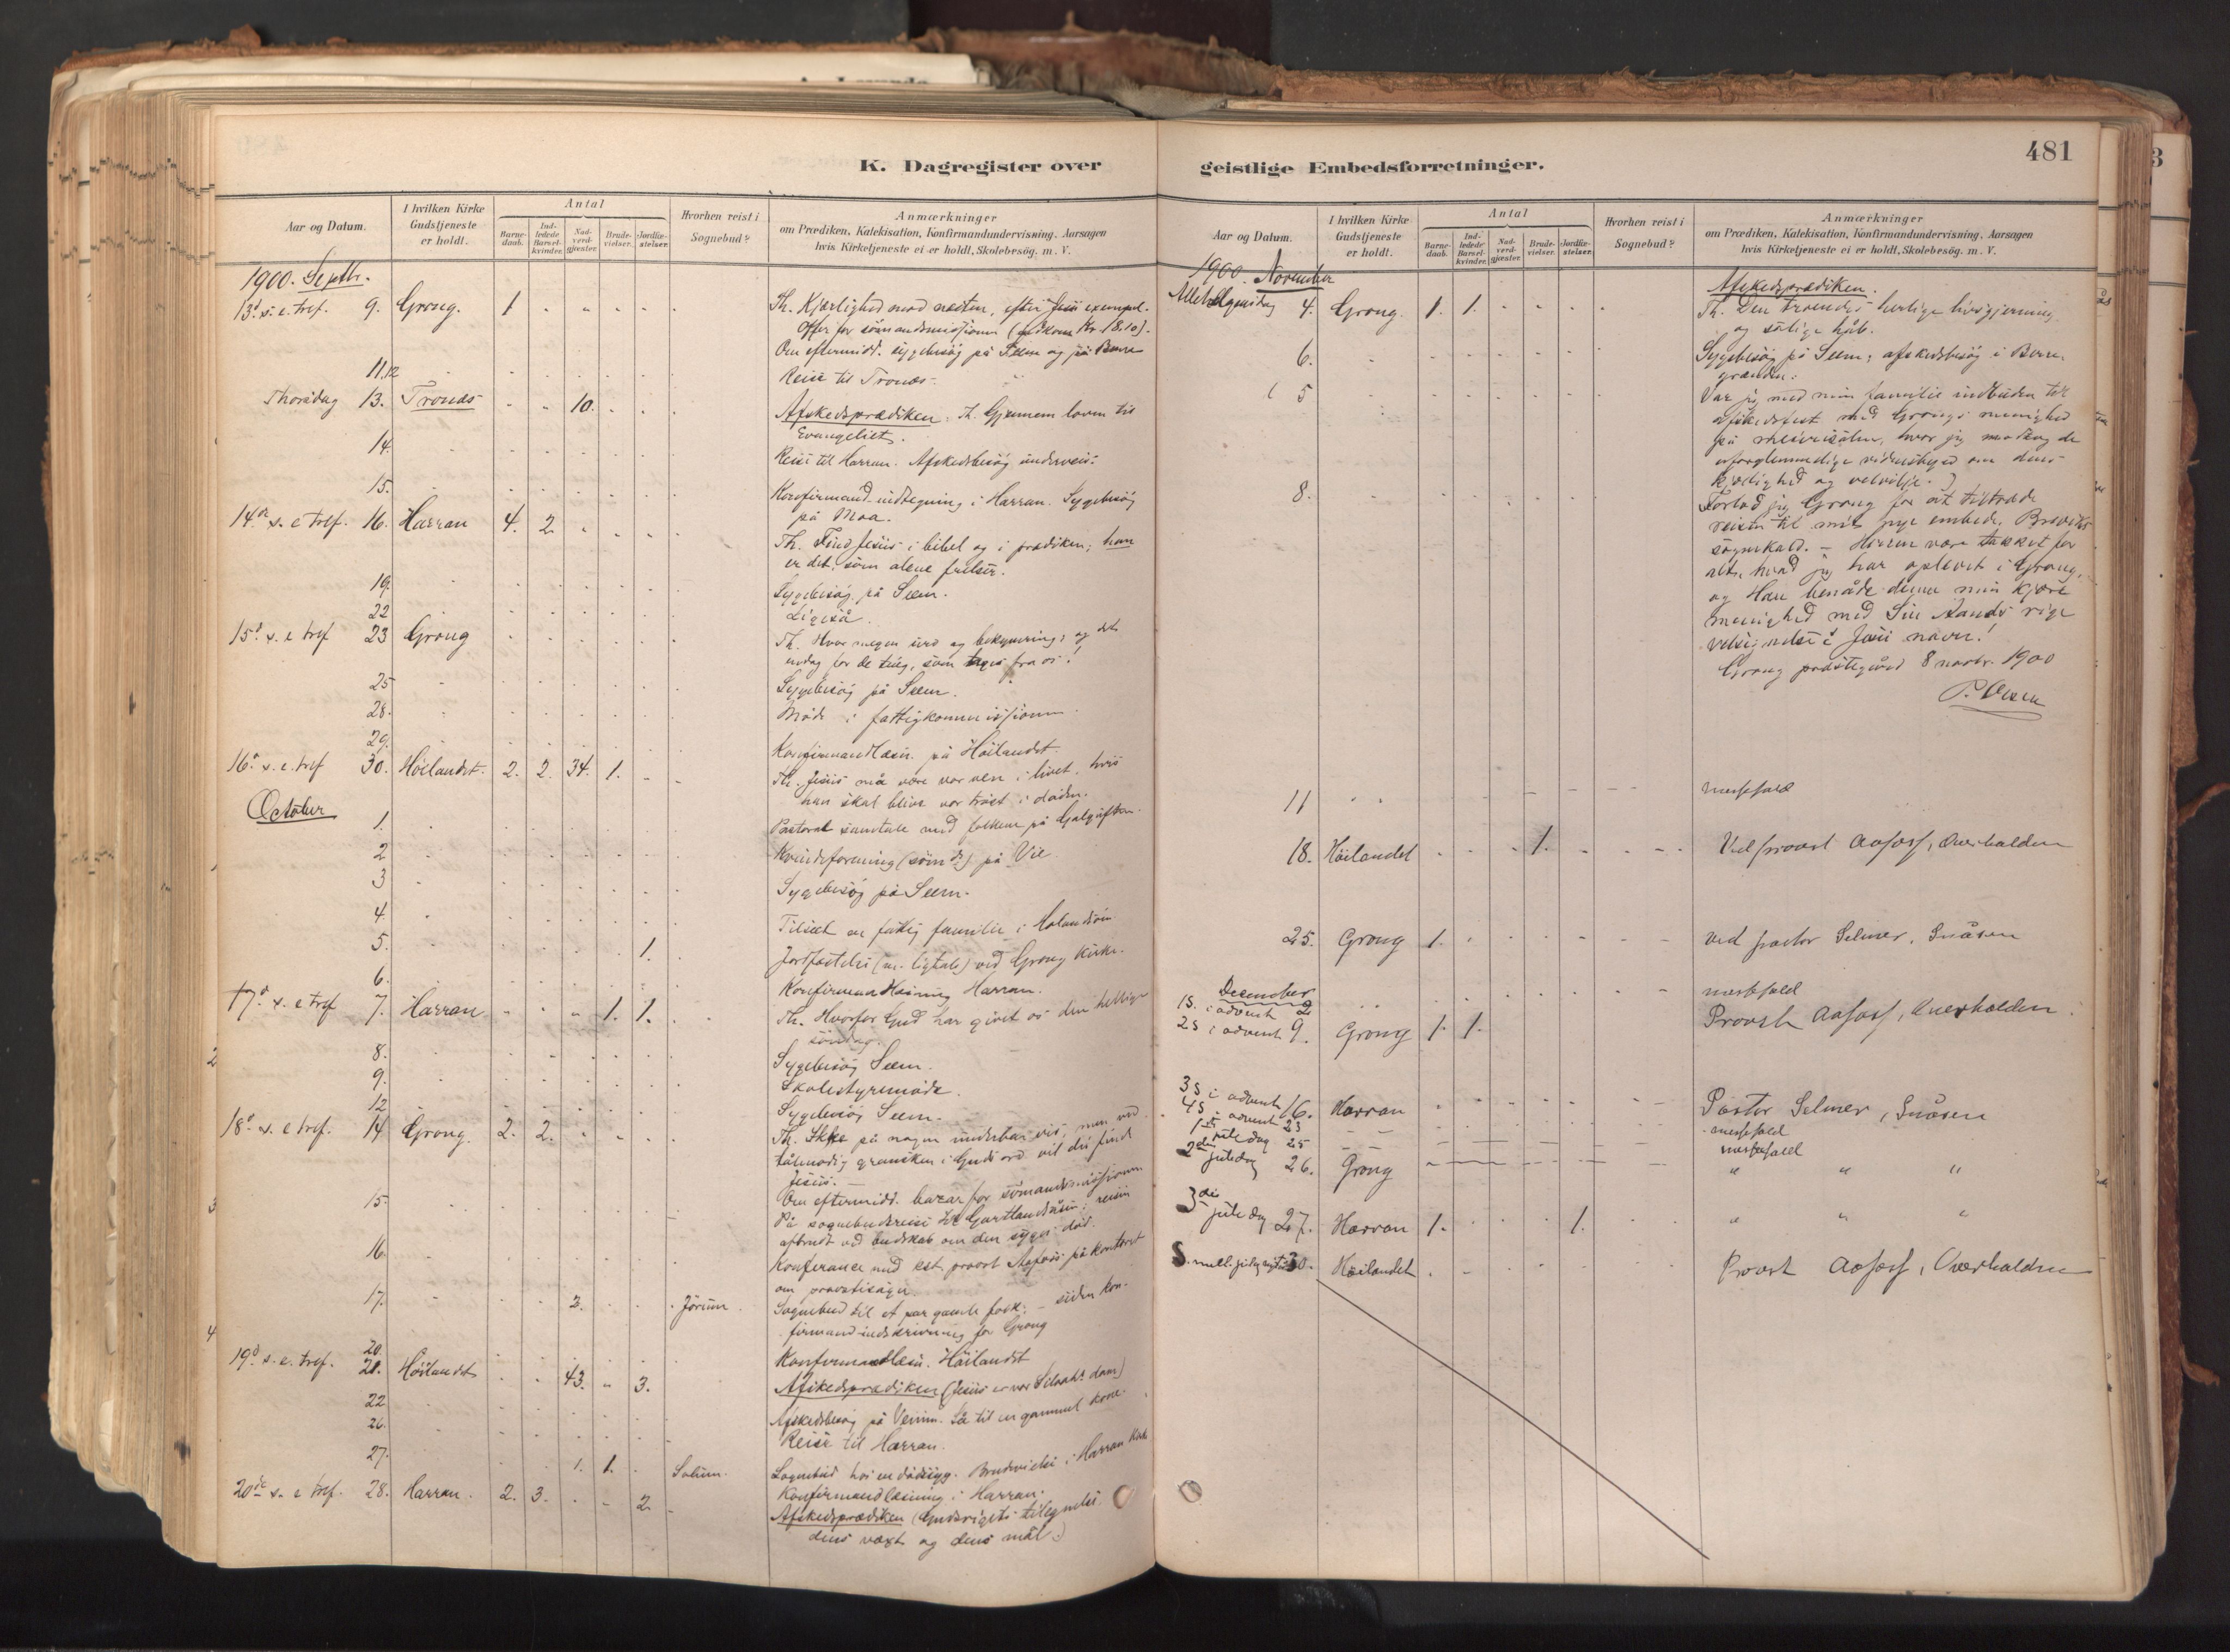 K. Dagregister over
Aar og Datum.
I hvilken Kirke Gudstjeneste er holdt.
Antal
Barne-daab.
Ind-ledede Barsel-kvinder.
Nad-verd-gjæster.
Brude-vielser.
Jordfæ-stelser.
Hvorhen reist i Sognebud?
Anmærkninger
om Prædiken, Katekisation, Konfirmandundervisning, Aarsagen
hvis Kirketjeneste ei er holdt, Skolebesög. m. V.
1900. Septbr.
13d s. e. tref. 9. Grong. 1 Th. Kjærlighed mod næsten, efter Jesu exempel.
Offer for sömandsmissionen
Om eftermidd. sygebesög på Seem og på
11,12 Reise til Tronæs.
Thorsdag 13. Tronæs 10. Afskedsprædiken. Th. Gjennem loven til
Evangeliet.
14. Reise til Harran. Afskedsbesög underveis.
15. Konfirmand-indtegning i Harran. Sygebesög
på Moa.
14de s. e. tref. 16. Harran 4. 2. Th. Find Jesus i bibel og i prædiken; han
er det, som alene frelser.
19. Sygebesög på Seem.
22 Ligeså.
15d s. e. tref 23 Grong Th. Hvor megen sorg og bekymring; og det
endog for de ting, som tages fra os!
25 Sygebesög på Seem.
28. Möde i fattigkommissionen
29. Konfirmandlæsn. på Höilandet.
16d s. e. tref 30. Höilandet. 2. 2. 34. 1. Th. Jesus må være vor ven i livet, hvis
han skal blive vor tröst i döden.
October
1. Pastoral samtale med folkene på
2 Kvindeforening på Vie
3 Sygebesög på Seem.
4. Tilseet en fattig familie i
5. 1. Jordfæstelse (m. ligtale) ved Grong Kirke.
6. Konfirmandlæsning Harran.
17d s. e tref 7. Harran 1. 1. Th. Hvorfor Gud har givet os den hellige
söndag.
8. Sygebesög Seem.
9. Skolestyremöde.
12 Sygebesög Seem.
18d s. e tref. 14 Grong. 2. 2. Th. Ikke på nogen underbar vis, men ved
tålmodig gransken i Guds ord vil du finde
Jesus. —
Om eftermidd. bazar for sömandsmissionen
15. På sognebudsreise til Gartlandsåsen; reisen
afbrudt ved budskab om den syges död.
16. Konferance med kst. provst Aafoss på kontoret
om provstisager.
17. 2. Jörum. Sognebud til et par gamle folk; – siden kon-
firmand-indskrivning for Grong
20. Konfirmandlæsn. Höilandet
19d s. e. tref. 21. Höilandet 43. 3. Afskedsprædiken
22 Afskedsbesög på
26. Reise til Harran.
27. 1. 1. Solum. Sognebud hos en dödssyg. Brudevielse i Harran Kirke
Konfirmandlæsning i Harran.
20de s. e tref. 28. Harran. 2. 3. 2. Afskedsprædiken (Gudsrigets tilegnelse
dens væxt og dens mål.)
481
geistlige Embedsforretninger.
Aar og Datum.
I hvilken Kirke Gudstjeneste er holdt.
Antal
Barne-daab.
Ind-ledede Barsel-kvinder.
Nad-verd-gjæster.
Brude-vielser.
Jordfæ-stelser.
Hvorhen reist i Sognebud?
Anmærkninger
om Prædiken, Katekisation, Konfirmandundervisning, Aarsagen
hvis Kirketjeneste ei er holdt, Skolebesög. m. V.
1900. November
Afskedsprædiken.
Allehelgensdag 4. Grong. 1. 1. Th. Den troendes herlige livsgjerning
og salige håb.
6. Sygebesög på Seem; afskedsbesög i
grænden.
5 Var jeg med min familie indbuden til
afskedsfest med Grongs menighed
på hvor jeg modtog de
uforglemmelige vidnesbyrd om dens
kjærlighed og velvilje.
8. Forlod jeg Grong for at tiltræde
reisen til mit nye embede,
sognekald. – Herren være takket for
alt, hvad jeg har oplevet i Grong,
og Han benåde denne min kjære
menighed med Sin Aands rige
velsignelse i Jesu navn!
Grong præstegård 8 novbr. 1900
P. Olsen
11 messefald
18. Höilandet 1. Ved provst Aafoss, Overhalden
25. Grong 1. Ved pastor Selmer, Snåsen
December
1S. i advent 2 messefald
2S i advent 9. Grong 1. 1. Provst Aafoss, Overhalden
3S i advent 16. Harran Pastor Selmer, Snåsen
4S i advent 23 messefald
1ste juledag 25 messefald
2den juledag 26. Grong " " "
3die juledag 27. Harran 1. 1. " " "
S. mell. jul og nytår 30. Höilandet Provst Aafoss, Overhalden